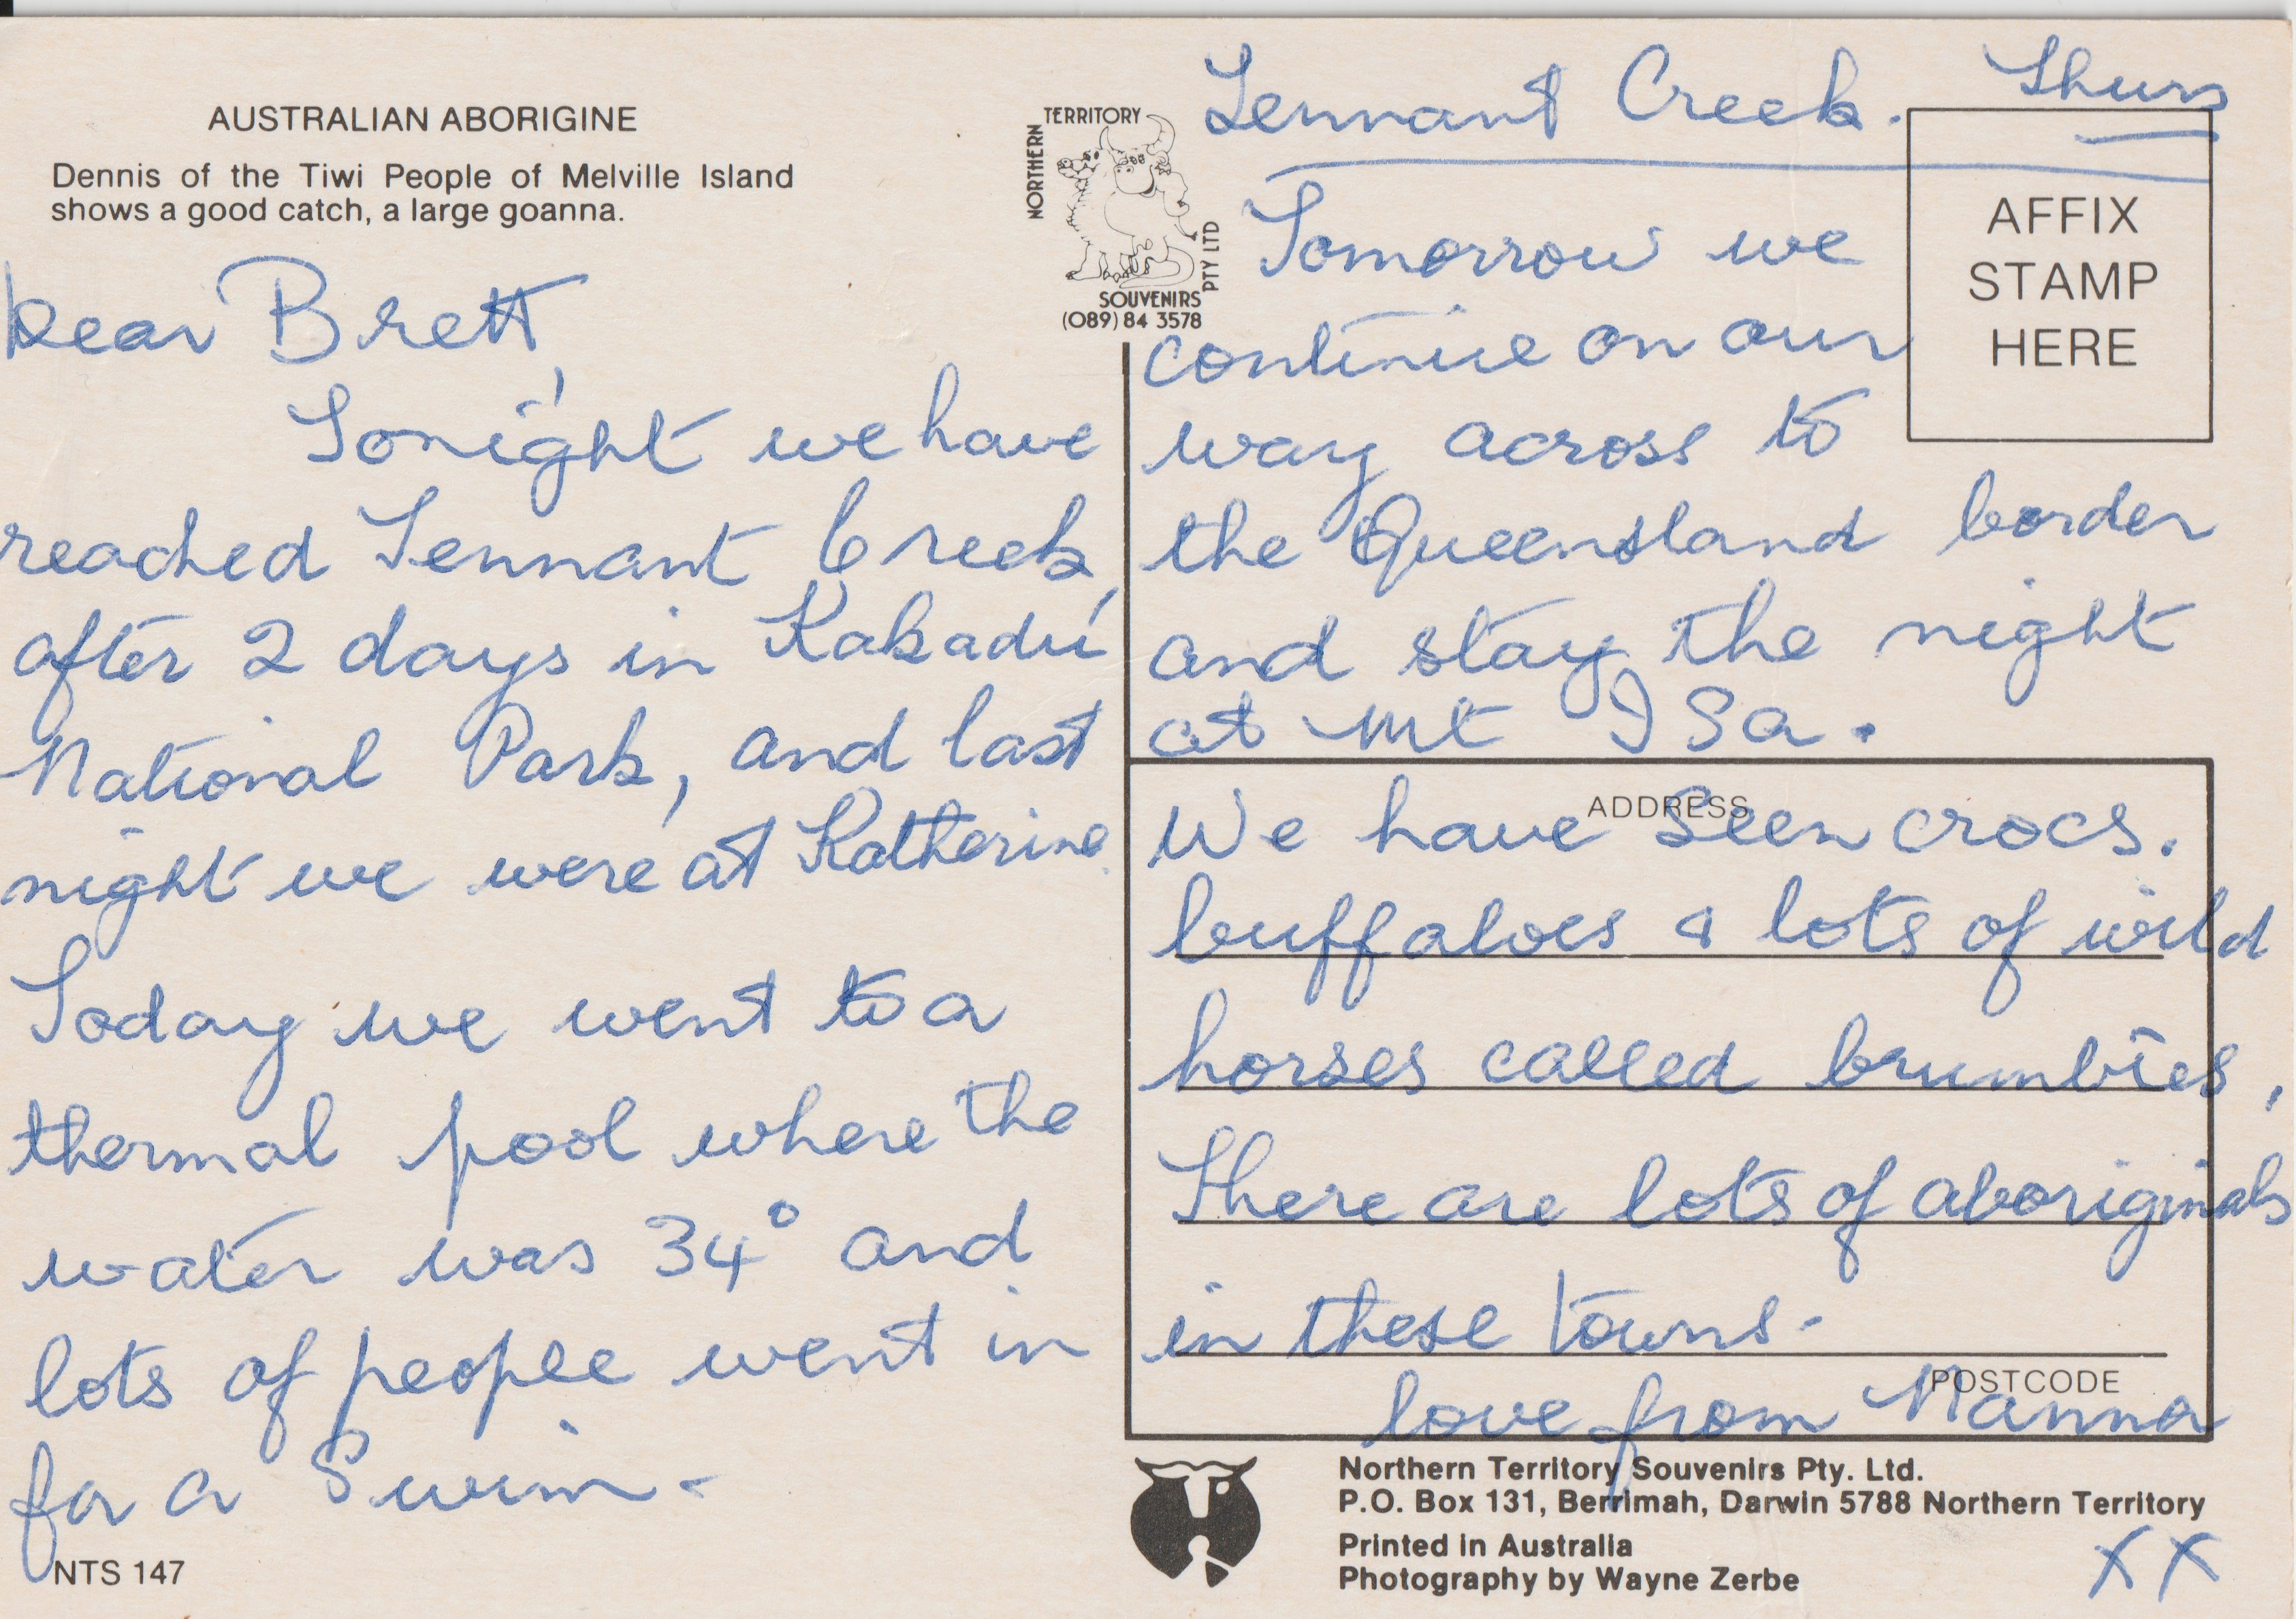 AUSTRALIAN ABORIGINE
Dennis of the Tiwi People of Melville Island
shows a good catch, a large goanna.
Dear Brett,
Tonight we have
reached Tennant Creek,
after 2 days in Kakadu
National Park, and last
night we were at Katherine.
Today we went to a
thermal pool where the
water was 34° and
lots of people went in
for a Swim.
NTS 147
NORTHERN
TERRITORY
SOUVENIRS
PTY LTD
(089) 84 3578
Tennant Creek. Thurs
AFFIX
STAMP
HERE
Tomorrow we
continue on our
way across to
the Queensland border
and stay the night
at Mt ISa.
ADDRESS
We have Seen crocs.
buffaloes & lots of wild
horses called brumbies,
There are lots of aboriginals
in these towns.
POSTCODE
love from Nanna
Northern Territory Souvenirs Pty. Ltd.
P.O. Box 131, Berrimah, Darwin 5788 Northern Territory
Printed in Australia
Photography by Wayne Zerbe
XX